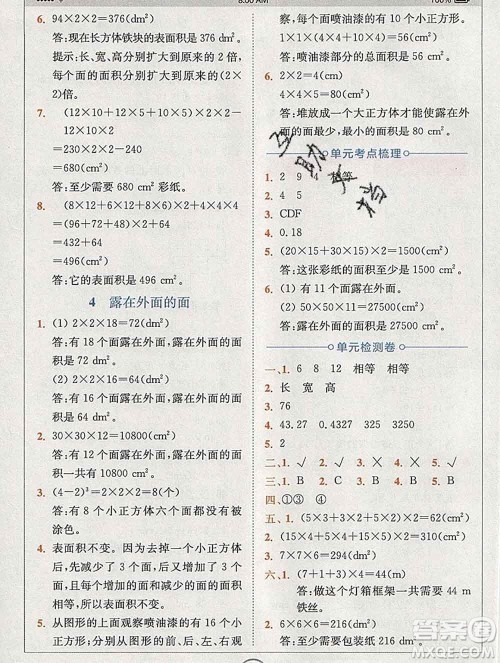 8:00 AM
100%
2. 94×2×2=376(dm²)
答:现在长方体铁块的表面积是 376 dm²。
提示:长、宽、高分别扩大到原来的 2 倍,
每个面的面积分别扩大到原来的(2×
2)倍。
7. (12×10+12×5+10×5)×2-
12×10×2
=230×2-240×2
=680(cm²)
答:至少需要 680 cm² 彩纸。
8. (8×12+6×12+8×6)×2+4×4×4
=(96+72+48)×2+64
=432+64
=496(cm²)
答:它的表面积是 496 cm²。
4 露在外面的面
1. (1) 2×2×18=72(dm²)
答:有 18 个面露在外面,露在外面的面
积是 72 dm²。
(2) 2×2×16=64(dm²)
答:有 16 个面露在外面,露在外面的面
积是 64 dm²。
2. 30×30×12=10800(cm²)
答:有 12 个面露在外面,露在外面的面积
一共有 10800 cm²。
3. (4-2)³=2×2×2=8(个)
答:有 8 个小正方体六个面都没有被
涂色。
4. 表面积不变。因为拿走一个小正方体
后,前面减少的面的面积和后来增加的
面的面积相等,所以表面积不变。
5. 从图形的上面观察喷油漆的有 4 个小正
方形;分别从图形的前、后、左、右观
察,每个面喷油漆的有 10 个小正方形。
1×1×(4×10+4)=44(m²)
答:喷油漆部分的总面积是 44 m²。
6. 2×2=4(cm²)
4×4×5=80(cm²)
答:堆放成一个大正方体才能使露在外
面的面最少,最小的面积是 80 cm²。
单元考点梳理
1. 2 9 4 相等
2. 4 5
3. CDF
4. 0.18
5. (20×15+30×15)×2=1500(cm²)
答:这张彩纸的面积是 1500 cm²。
6. (1) 有 11 个面露在外面。
(2) 50×50×11=27500(cm²)
答:露在外面的面积是 27500 cm²。
单元检测卷
一、1. 6 8 12 相等 相等
2. 长 宽 高
3. 76
4. 43.27 0.4327 3250 3.25
5. 2
二、1. √ 2. × 3. × 4. √ 5. ×
三、1. B 2. C 3. A 4. A 5. B
四、①③ ④
五、1. (5×3+3×2+5×2)×2=62(cm²)
2. 7×7×6=294(m²)
六、1. (7+1+3)×4=44(m)
答:做这个灯箱框架一共需要 44 m
铁丝。
2. 6×6×6=216(dm²)
答:至少需要包装纸 216 dm²。